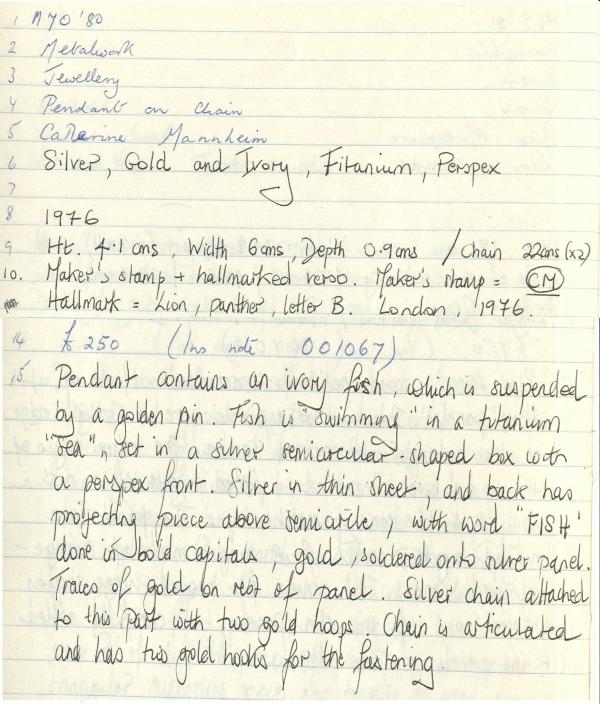 1 M70 '80
2 Metalwork
3 Jewellery
4 Pendant on Chain
5 Catherine Mannheim
6 Silver, Gold and Ivory, Fitanium, Perspex
7
8 1976
9 Ht. 4.1 cms, Width 6cms, Depth 0.9cms / Chain 22cms (x2)
10. Maker's stamp + hallmarked verso. Maker's stamp = CM
Hallmark = Lion, panther, letter B. London, 1976.
14 £250 (Ins note 001067)
15 Pendant contains an ivory fish, which is suspended
by a golden pin. Fish is "swimming" in a titanium
"sea", set in a silver semicircular-shaped box with
a perspex front. Silver in thin sheet, and back has
projecting piece above semicircle, with word "FISH'
done in bold capitals, gold, soldered onto silver panel.
Traces of gold on rest of panel. Silver chain attached
to this part with two gold hoops. Chain is articulated
and has two gold hooks for the fastening.